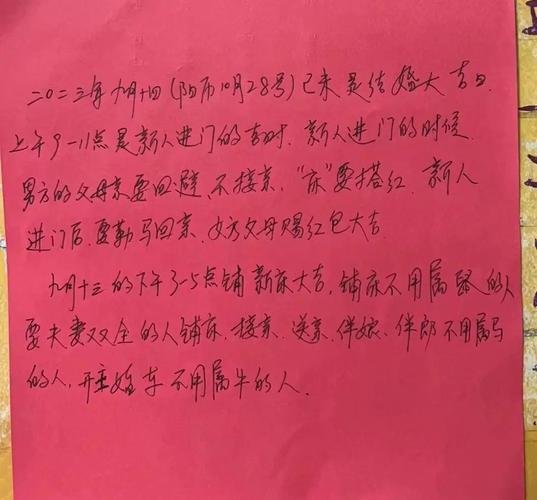 二〇二三年九月十四(阳历10月28号)己未是结婚大吉日.
上午9-11点是新人进门的吉时.新人进门的时候
男方的父母亲要回避、不接亲,"床"要搭红.新人
进门后.要勒马回亲.女方父母赐红包大吉.
九月十三的下午3-5点铺新床大吉,铺床不用属鼠的人
要夫妻双全的人铺床.接亲.送亲.伴娘.伴郎不用属马
的人,开主婚车不用属牛的人.